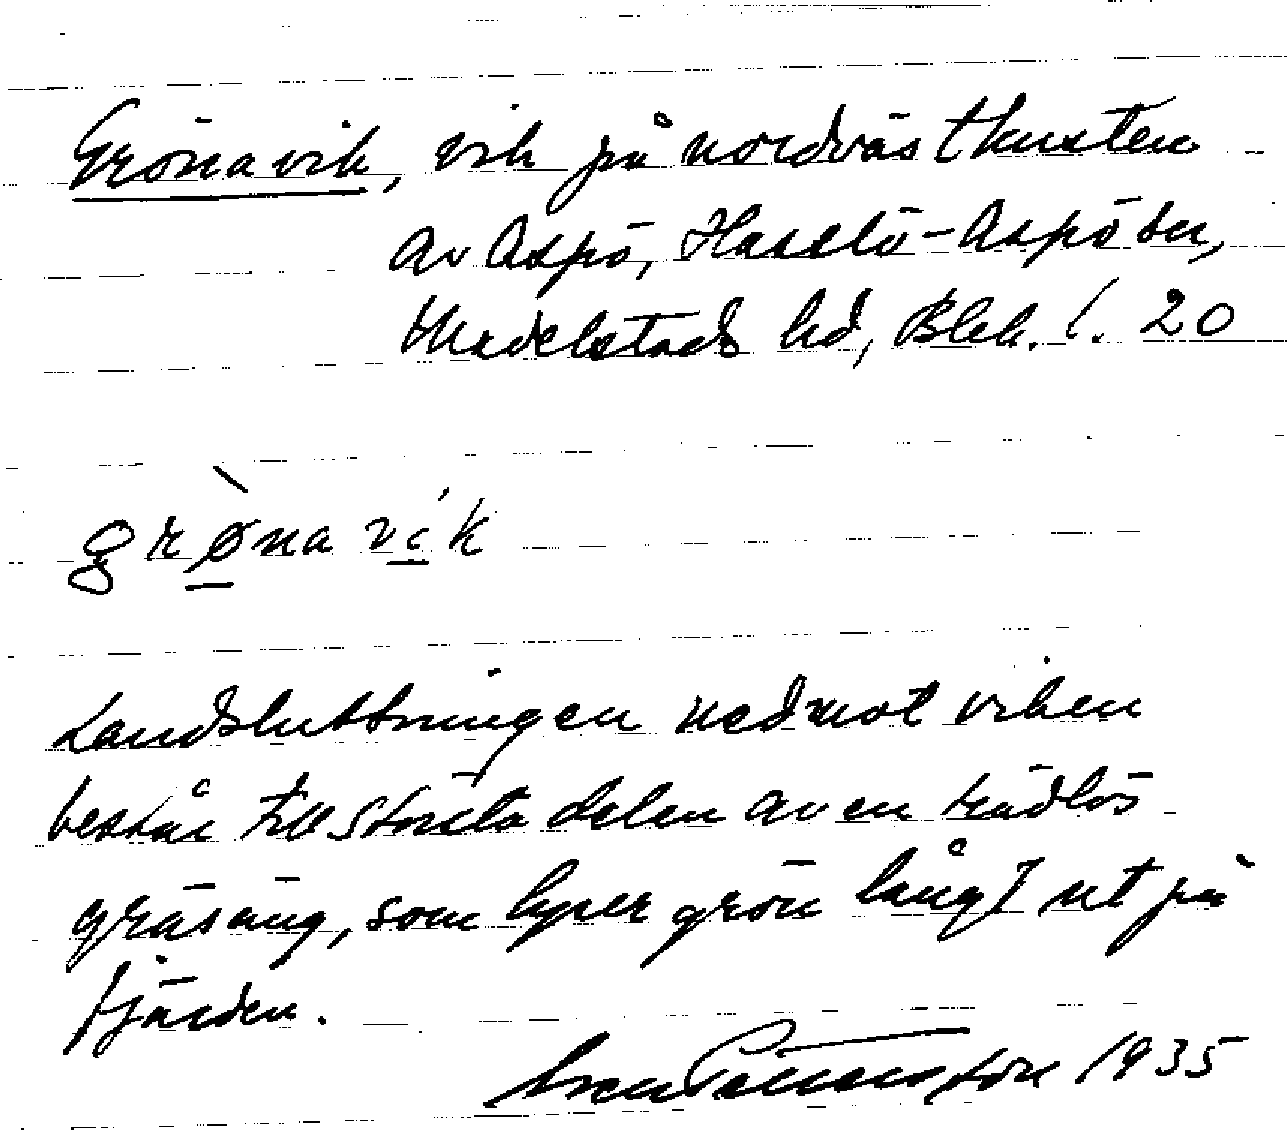 Grönavik, vik på nordvästkusten
av Aspö, Hasslö-Aspö sn,
Medelstads hd, Blek. l. 20
grønavik
Landsluttningen nedmot viken
består till största delen av en trädlös
gräsäng, som lyser grön långt ut på
fjärden.
Sven 1935